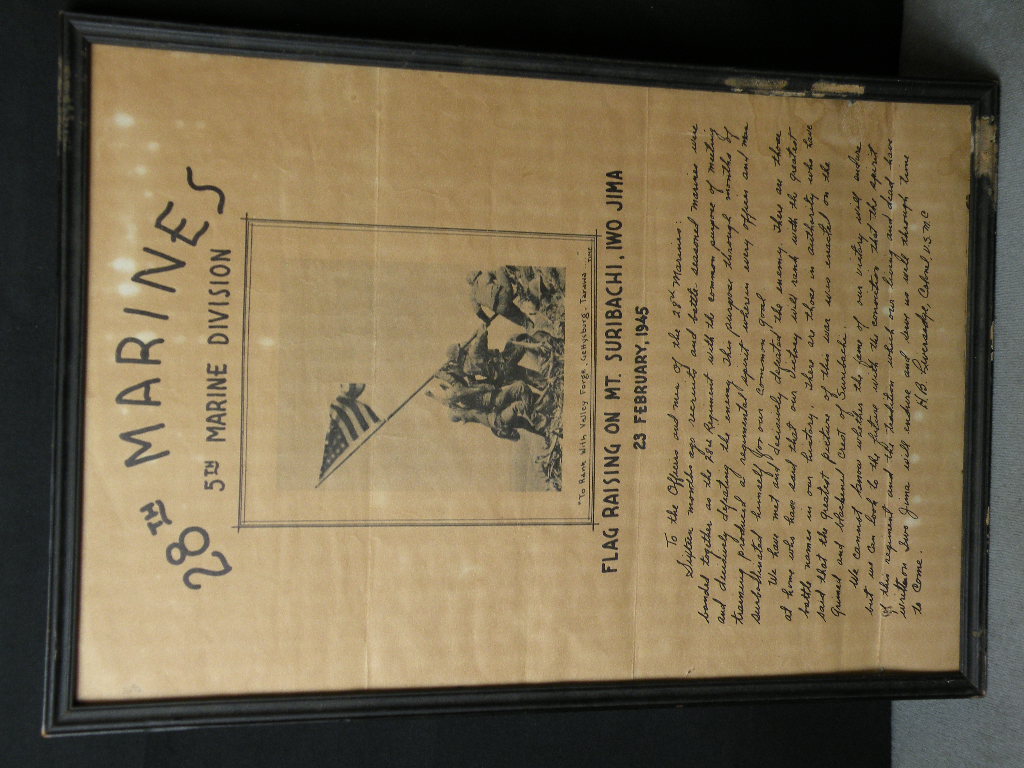 28TH MARINES
5TH MARINE DIVISION
"To Rank With Valley Forge, Gettysburg, Tarawa" TIME
FLAG RAISING ON MT. SURIBACHI, IWO JIMA
23 FEBRUARY, 1945
To the Officers and men of the 28th Marines:
Sixteen months ago recruits and battle seasoned marines were
banded together as the 28th Regiment with the common purpose of meeting
and decisively defeating the enemy. This purpose through months of
training produced a regimental spirit wherein every officer and man
subordinated himself for our common good.
We have met and decisively defeated the enemy. There are those
at home who have said that our victory will rank with the greatest
battle names in our history, there are those in authority who have
said that the greatest picture of this war was enacted on the
grimed and blackened crest of Suribachi.
We cannot know whether the fame of our victory will endure
but we can look to the future with the conviction that the spirit
of this regiment and the tradition which our living and dead have
written on Iwo Jima will endure and serve us well through time
to come.
H.B. Liversedge, Colonel U.S.M.C